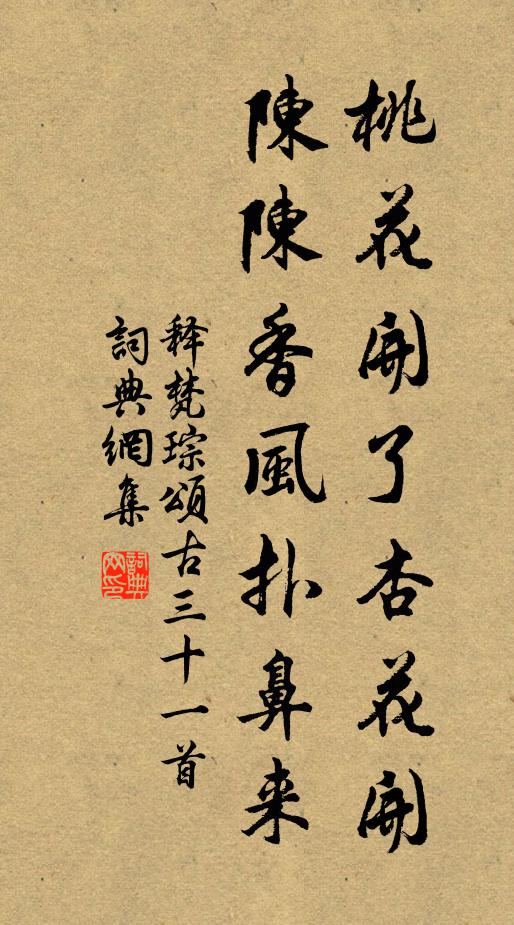 桃花開了杏花開
陳陳香風扑鼻来
释梵琮頌古三十一首
詞典網集
詞典网印